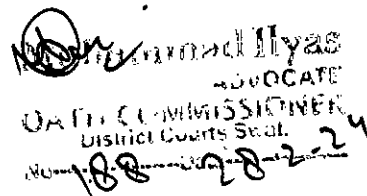 Muhammad Ilyas
ADVOCATE
OATH COMMISSIONER
District Courts
No 188 28-2-24